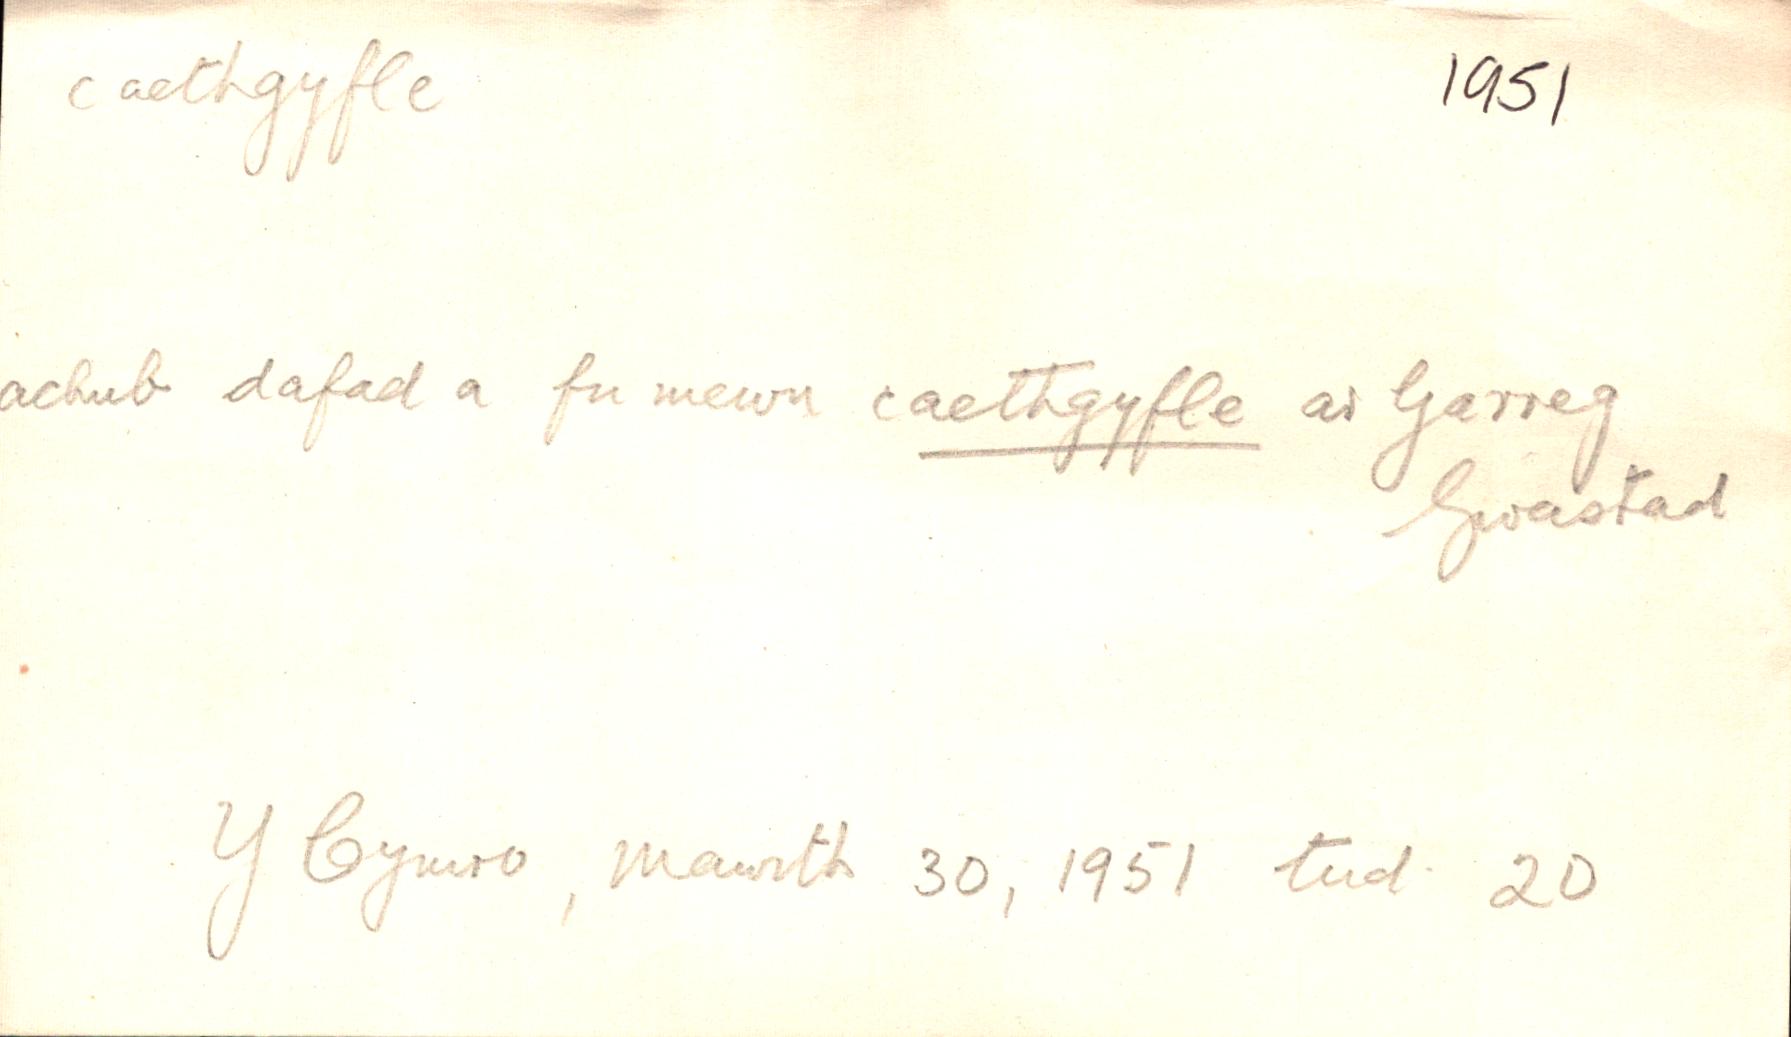 caethgyfle 1951
achub dafad a fu mewn caethgyfle ar Garreg
Gwastad
Y Cymro, Mawrth 30, 1951 tud. 20